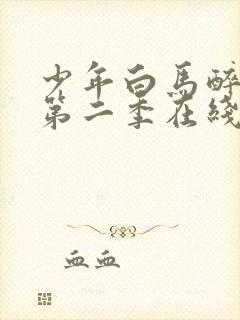 少年白马醉
第二季在线
血血